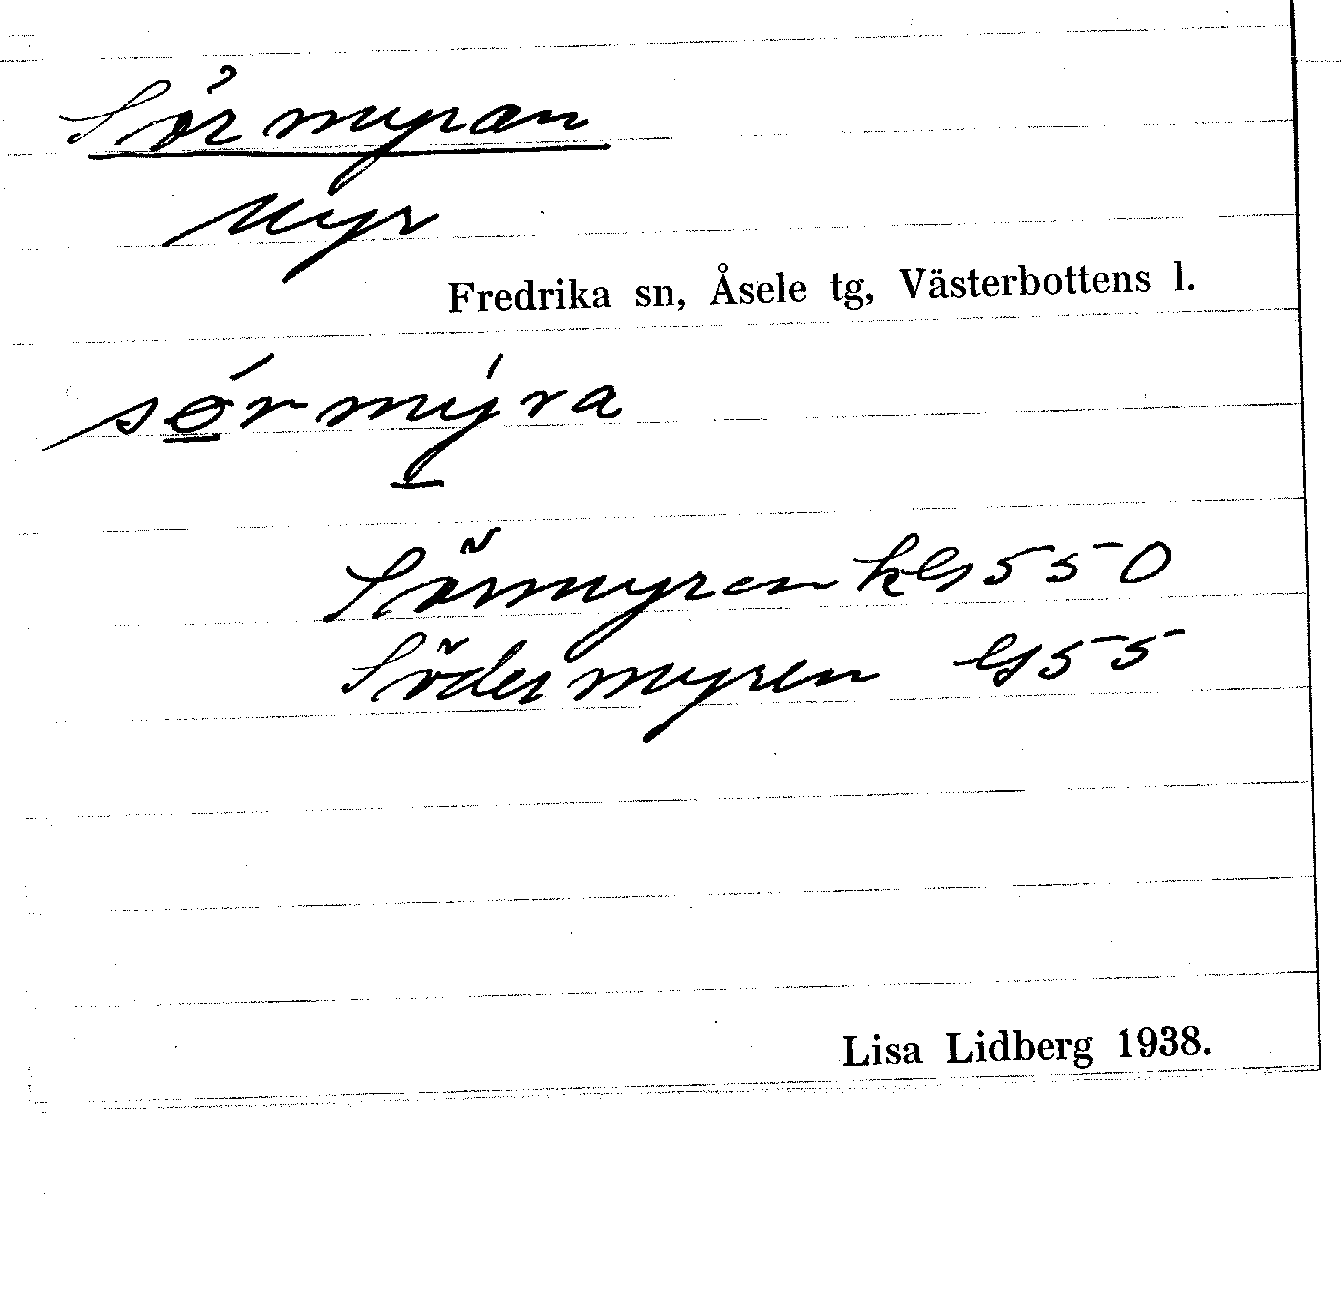 Sörmyran
Myr
Fredrika sn, Åsele tg, Västerbottens l.
sǿ̲rmý̲ra
Sörmyren
Södermyren
Lisa Lidberg 1938.